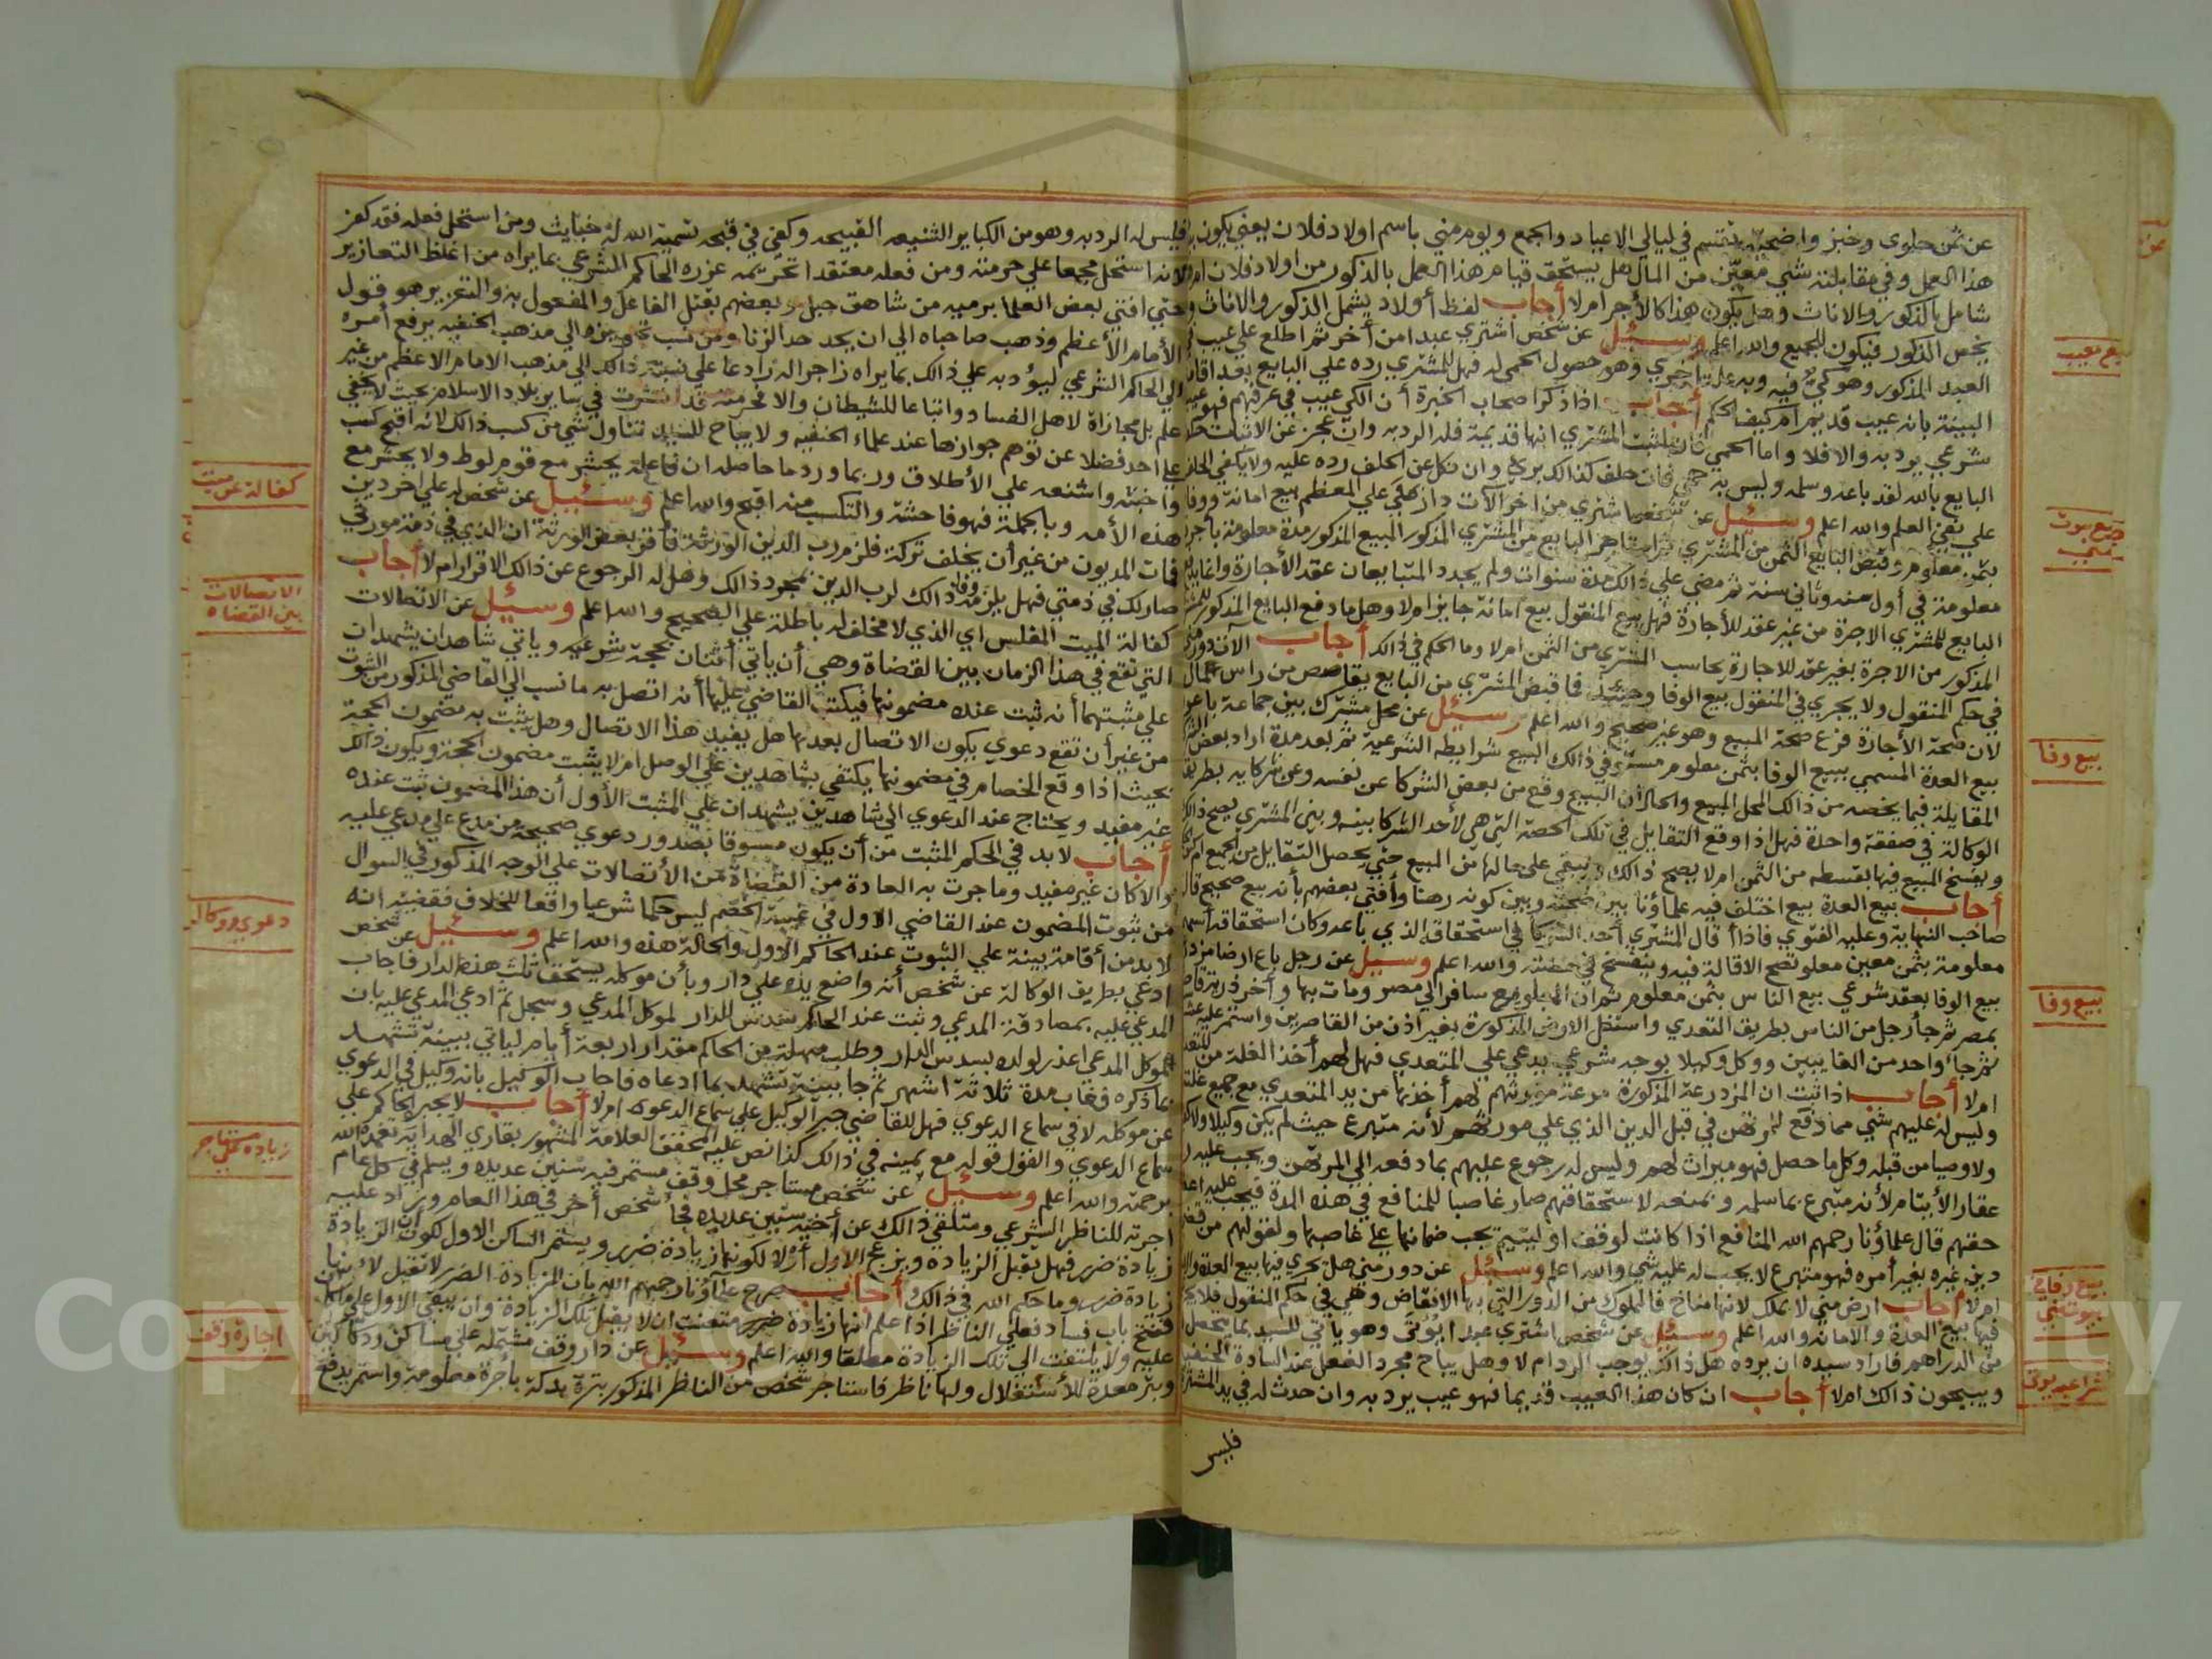 عن ثمن حلوى وخبز واضحية تقسم في ليالي الاعياد والجمع ويوم مني باسم اولاد فلان يعني يكون
هذا العمل وفي مقابلته شي معين من المال هل يستحق قيام هذا العمل بالذكور من اولاد فلان
شامل بالذكور والاناث وهل يكون هذا كالأجر ام لا أجاب لفظ أولاد يشمل الذكور والاناث
يخص الذكور فيكون للجميع والله اعلم وسئل عن شخص اشتري عبدا من أخر ثم اطلع علي عيب
العبد المذكور وهو كي فيه وبه علة اخري وهو حصول الحمي له فهل للمشتري رده علي البايع بعد
البينة بانه عيب قديم ام كيف الحكم أجاب اذا ذكر اصحاب الخبرة أن الكي عيب في عرفهم فهو عيب
شرعي يرد به والا فلا واما الحمي فان اثبت المشتري انها قديمة فله الرد به وان عجز عن الاثبات
البايع بالله لقد باعه وسلمه وليس به حمي فان حلف كذالك بري وان نكل عن الحلف رده عليه ولا يكفي
علي نفي العلم والله اعلم وسئل عن شخص اشتري من اخر الات دار هي علي المعظم بيع امانة ووفا
بثمن معلوم وقبض البايع الثمن من المشتري ثم استاجر البايع من المشتري المذكور المبيع المذكور مدة معلومة
معلومة في أول سنه وثاني سنة ثم مضي علي ذالك مدة سنوات ولم يجدد المتبايعان عقد الأجارة وانما
البايع للمشتري الاجرة من غير عقد للأجارة فهل بيع المنقول بيع امانة جايز ام لا وهل ما دفع البايع المذكور
المذكور من الاجرة بغير عقد للاجارة يحاسب المشتري من الثمن ام لا وما الحكم في ذالك أجاب
في حكم المنقول ولا يجري في المنقول بيع الوفا وحينئذ فما قبض المشتري من البايع يقاصص من راس المال
لان صحة الأجارة فرع صحة المبيع وهو غير صحيح والله اعلم وسئل عن محل مشترك بين جماعة
بيع العدة المسمي ببيع الوفا بثمن معلوم مستوفي ذالك البيع شرايطه الشرعية ثم بعد مدة اراد بعض
المقايلة فيما يخصه من ذالك المحل المبيع والحال ان البيع وقع من بعض الشركا عن نفسه وعن شركايه بطريق
الوكالة في صفقة واحدة فهل اذا وقع التقايل في تلك الحصة التي هي لأحد الشركا بينه وبين المشتري يصح ذالك
وينفسخ المبيع فيها بقسطه من الثمن ام لا يصح ذالك ويبقي علي حاله من المبيع حتي يحصل التقايل من الجميع
أجاب بيع العدة بيع اختلف فيه علماؤنا بين صحته وبين كونه رهنا وأفتي بعضهم بأنه بيع صحيح
صاحب النهاية وعليه الفتوي فاذا قال المشتري أحد الشركا في استحقاقه الذي باعه وكان استحقاقه
معلومة بثمن معين معلوم تصح الاقالة فيه وينفسخ في حصته والله اعلم وسئل عن رجل باع ارضا
بيع الوفا بعقد شرعي بيع الناس بثمن معلوم ثم ان البايع سافر الي مصر ومات بها وأخر ذريته
بمصر ثم جا رجل من الناس بطريق التعدي واستغل الارض المذكورة بغير اذن من القاصرين واستمر
ثم جاء واحد من الغايبين ووكل وكيلا بوجه شرعي يدعي علي المتعدي فهل لهم أخذ الغلة من
ام لا أجاب اذا ثبت ان المزدرعة المذكورة مزرعة مورثهم لهم أخذها من يد المتعدي مع جميع
وليس له عليهم شي مما دفع للمرتهن في قبل الدين الذي علي مورثهم لأنه متبرع حيث لم يكن وكيلا
ولا وصيا من قبله وكل ما حصل فهو ميراث لهم وليس له رجوع عليهم بما دفعه الي المرتهن ويجب عليه
عقار الأيتام لأنه متبرع بما سلمه وبمنعه لاستحقاقهم صار غاصبا للمنافع في هذه المدة فيجب عليه
حقهم قال علماؤنا رحمهم الله المنافع اذا كانت لوقف او ليتيم تجب ضمانها علي غاصبها ولقولهم من
دين غيره بغير أمره فهو متبرع لا يجب له عليه شي والله اعلم وسئل عن دور مني هل يجري فيها بيع العدة
ام لا أجاب ارض مني لا تملك لانها مناخ فالمملوك من الدور التي بها الانقاض وهي في حكم المنقول فلا
فيها بيع العدة والامانه والله اعلم وسئل عن شخص اشتري عبدا يؤتي وهو ياتي للسيد بما يحصل
من الدراهم فاراد سيده ان يرده هل ذالك يوجب الرد ام لا وهل يباح مجرد الفعل عند السادة الحنفية
ويبيحون ذالك ام لا أجاب ان كان هذا العيب قديما فهو عيب يرد به وان حدث له في يد المشتري
فليس
بيع معيب
بيع بيوت
بمني
بيع وفا
بيع وفا
بيع وفا في
بيوت مني
شرا عبد يوتي
فليس له الرد به وهو من الكباير الشنيعه القبيحه وكفي في قبحه تسمية الله له خبايث ومن استحل فعله فقد كفر
لانه استحل مجمعا علي حرمته ومن فعله معتقدا تحريمه عزره الحاكم الشرعي بما يراه من اغلظ التعازير
حتي افتي بعض العلما برميه من شاهق جبل وبعضهم بقتل الفاعل والمفعول به والتعزير هو قول
الأمام الأعظم وذهب صاحباه الي ان يحد حد الزنا ومن نسب تجويزه الي مذهب الحنفيه يرفع أمره
الي الحاكم الشرعي ليؤدبه علي ذالك بما يراه زاجرا له رادعا علي نسبة ذالك الي مذهب الامام الاعظم من غير
علم بل مجازاة لاهل الفساد واتباعا للشيطان والا فحرمته قد انتشرت في ساير بلاد الاسلام بحيث لا يخفي
علي احد فضلا عن توهم جوازها عند علماء الحنفيه ولا يباح للسيد تناول شي من كسب ذالك لانه اقبح كسب
واخبثه واشنعه علي الأطلاق وربما ورد ما حاصله ان فاعله يحشر مع قوم لوط ولا يحشر مع
هذه الأمه وبالجملة فهو فاحشة والتكسب منه اقبح والله اعلم وسئل عن شخص له علي اخر دين
فمات المديون من غير أن يخلف تركة فلزم رب الدين الورثة فاقر بعض الورثة ان الذي في ذمة مورثي
صار لك في ذمتي فهل يلزمه وفا ذالك لرب الدين بمجرد ذالك وهل له الرجوع عن ذالك الاقرار ام لا أجاب
كفالة الميت المفلس اي الذي لا مخلف له باطلة علي الصحيح والله اعلم وسئل عن الاتصالات
التي تقع في هذا الزمان بين القضاة وهي أن ياتي أثنان بحجة شرعيه وياتي شاهدان يشهدان
علي مثبتهما أنه ثبت عنده مضمونها فيكتب القاضي عليها أنه اتصل به ما نسب الي القاضي المذكور من الثبوت
من غير أن تقع دعوي يكون الاتصال بعدها هل يفيد هذا الاتصال وهل يثبت به مضمون الحجة
بحيث اذا وقع الخصام في مضمونها يكتفي بشاهدين علي الوصل ام لا يثبت مضمون الحجة ويكون ذالك
غير مفيد ويحتاج عند الدعوي الي شاهدين يشهدان علي المثبت الأول أن هذا المضمون ثبت عنده
أجاب لا بد في الحكم المثبت من أن يكون مسبوقا بصدور دعوي صحيحة من مدع علي مدعي عليه
والا كان غير مفيد وما جرت به العادة من القضاة من الأتصالات علي الوجه المذكور في السوال
من ثبوت المضمون عند القاضي الاول في غيبة الخصم ليس حكما شرعيا واقعا للخلاف فقضيته انه
لا بد من أقامة بينة علي الثبوت عند الحاكم الاول والحالة هذه والله اعلم وسئل عن شخص
ادعي بطريق الوكالة عن شخص أنه واضع يده علي دار وبأن موكله يستحق ثلث هذه الدار فاجاب
المدعي عليه بمصادقة المدعي وثبت عند الحاكم سدس الدار لموكل المدعي وسجل ثم ادعي المدعي عليه بان
لموكل المدعي اعذر لولده بسدس الدار وطلب مهلة من الحاكم مقدار اربعة أيام لياتي ببينة تشهد
بما ذكره فغاب مدة ثلاثة اشهر ثم جا ببينة تشهد بما ادعاه فاجاب الوكيل بانه وكيل في الدعوي
عن موكله لا في سماع الدعوي فهل للقاضي جبر الوكيل علي سماع الدعوه ام لا أجاب لا يجبر الحاكم علي
سماع الدعوي والقول قوله مع يمينه في ذالك كذا نص عليه المحقق العلامة المشهور بقاري الهداية تغمده الله
برحمته والله اعلم وسئل عن شخص مستاجر محل وقف مستمر فيه سنين عديده ويسلم في كل عام
اجرته للناظر الشرعي ومتلقي ذالك عن أخيه سنين عديده فجا شخص أخر في هذا العام وزاد عليه
زيادة ضرر فهل تقبل الزياده وينزع الاول أو لا لكونها زيادة ضرر ويستمر الساكن الاول لكون ان الزيادة
زيادة ضرر وما حكم الله في ذالك أجاب صرح علماؤنا رحمهم الله بان الزيادة الضرر لا تقبل لأنها
فتح باب فساد فعلي الناظر اذا علم انها زيادة ضرر متعنت ان لا يقبل تلك الزيادة وان يبقي الاول علي
عليه ولا يلتفت الي تلك الزيادة مطلقا والله اعلم وسئل عن دار وقف مشتمله علي مساكن ودكاكين
وبئر معدة للأستغلال ولها ناظر فاستاجر شخص من الناظر المذكور بأجرة معلومة واستمر يدفع
كفالة عن ميت
الاتصالات
بين القضاه
دعوي ووكاله
زياده علي مستاجر
اجارة وقف